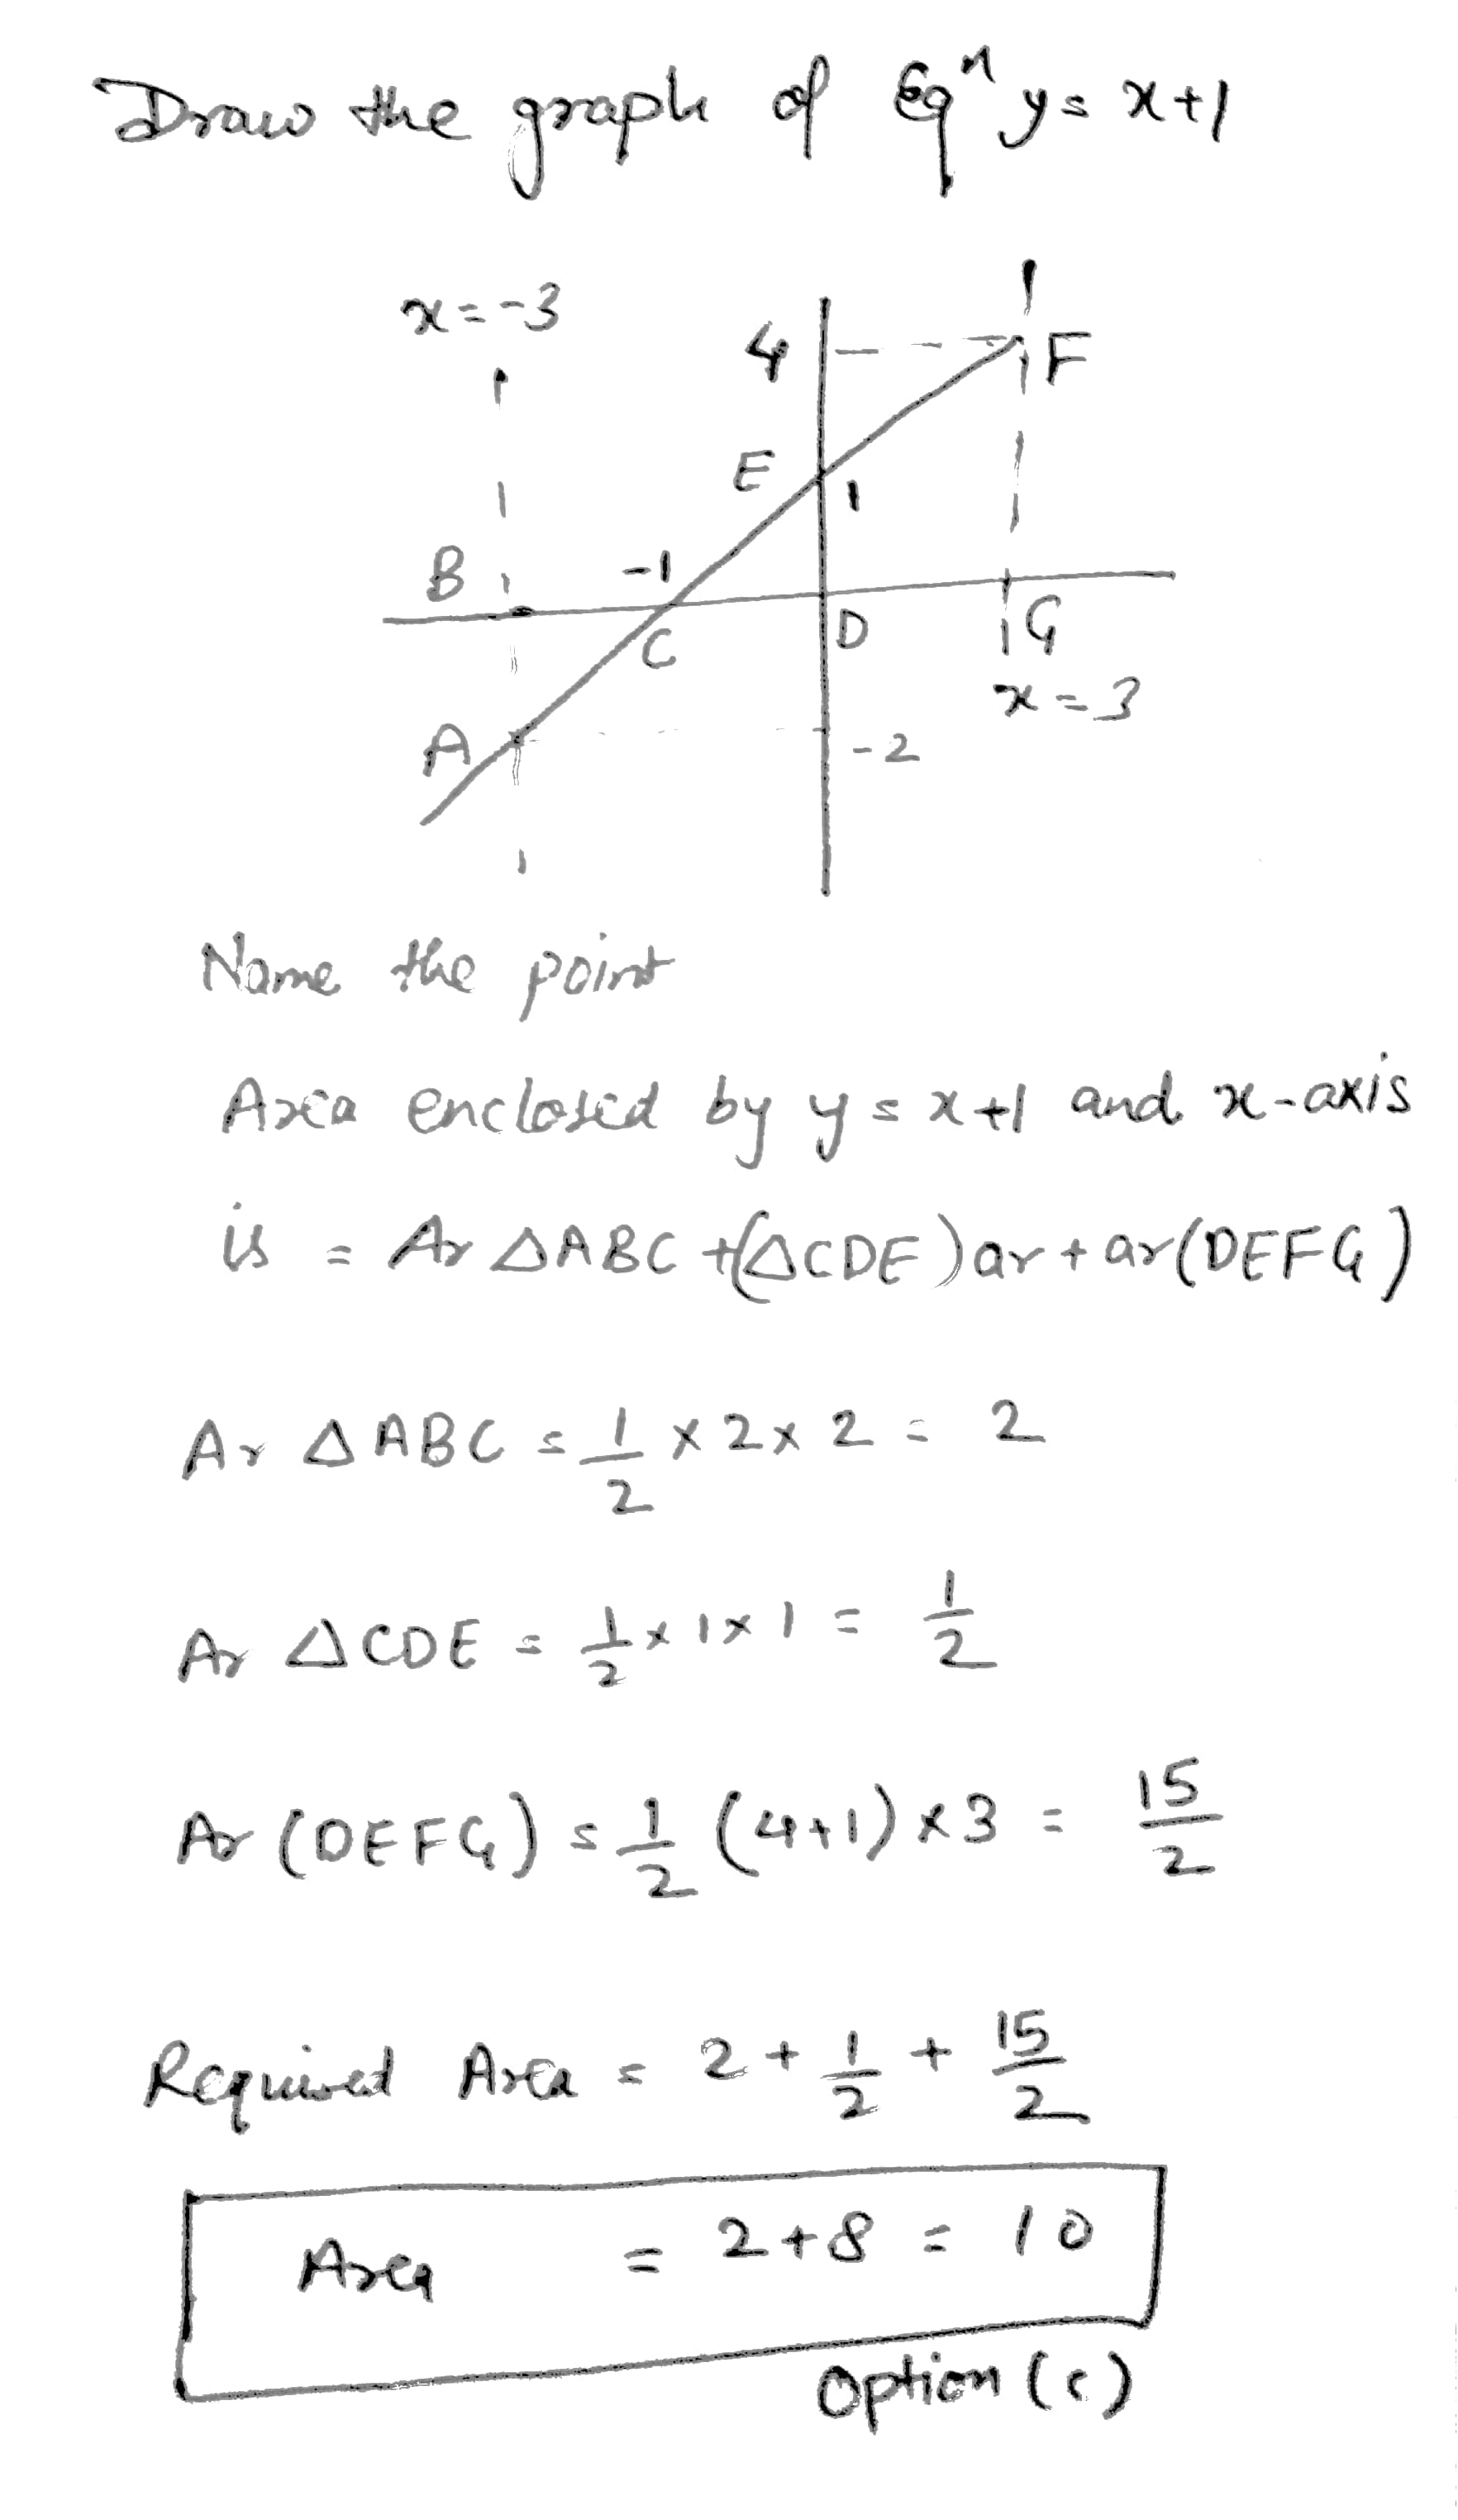 Draw the graph of Eqⁿ y = x+1
x = -3
4
F
E
1
B
-1
C
D
G
x = 3
A
-2
Name the point
Area enclosed by y = x+1 and x-axis
is = Ar △ABC + (△CDE) ar + ar(DEFG)
Ar △ABC = 1/2 × 2 × 2 = 2
Ar △CDE = 1/2 × 1 × 1 = 1/2
Ar (DEFG) = 1/2 (4+1) × 3 = 15/2
Required Area = 2 + 1/2 + 15/2
Area = 2+8 = 10
Option (c)